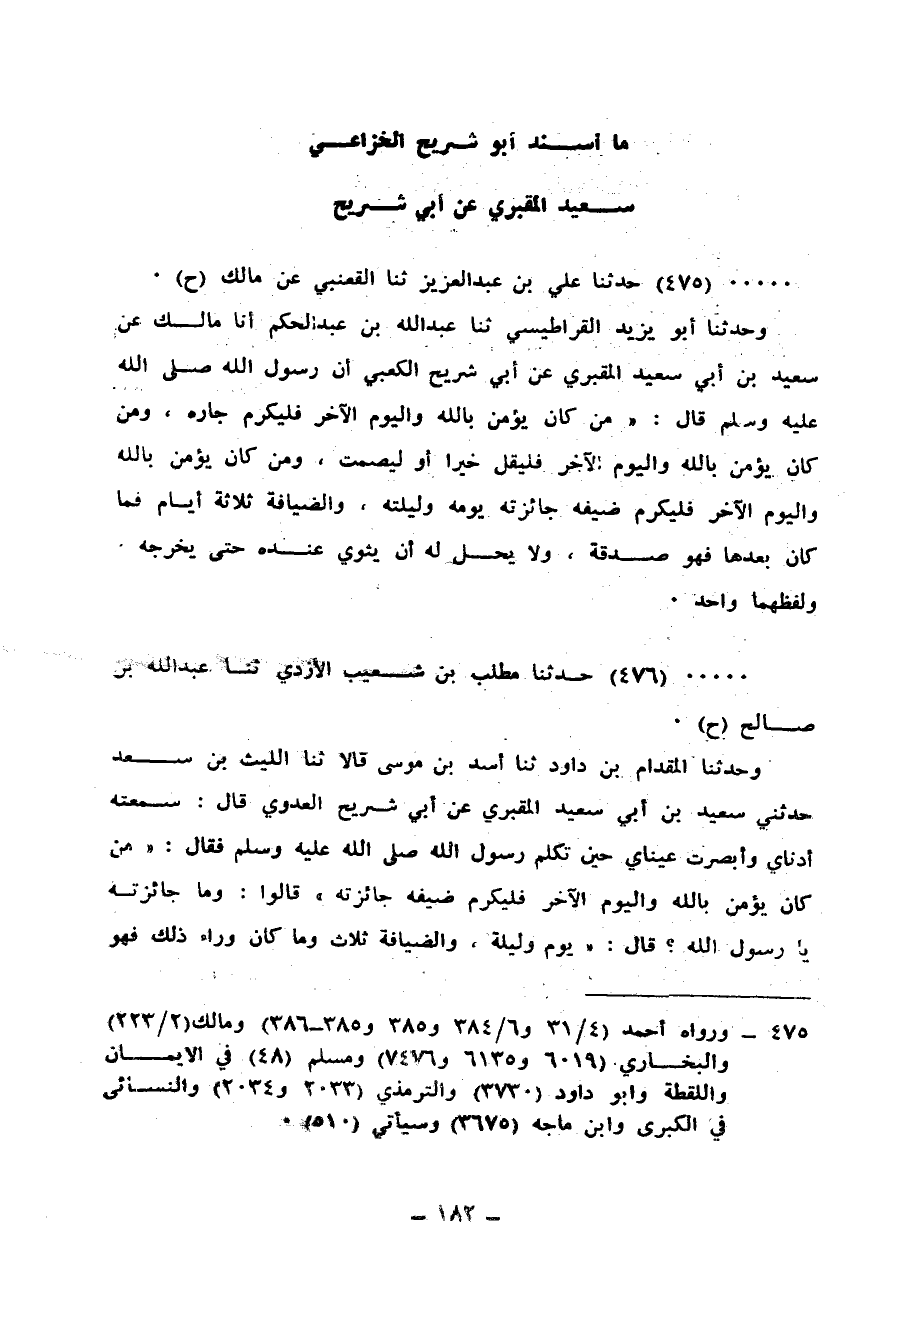 ما أســند أبو شريح الخزاعــي
ســعيد المقبري عن أبي شــريح
٠٠٠٠٠ (٤٧٥) حدثنا علي بن عبدالعزيز ثنا القعنبي عن مالك (ح) ٠
وحدثنا أبو يزيد القراطيسي ثنا عبدالله بن عبدالحكم أنا مالــك عن
سعيد بن أبي سعيد المقبري عن أبي شريح الكعبي أن رسول الله صــلى الله
عليه وسلم قال : « من كان يؤمن بالله واليوم الآخر فليكرم جاره ، ومن
كان يؤمن بالله واليوم الآخر فليقل خيرا أو ليصمت ، ومن كان يؤمن بالله
واليوم الآخر فليكرم ضيفه جائزته يومه وليلته ، والضيافة ثلاثة أيــام فما
كان بعدها فهو صــدقة ، ولا يحــل له أن يثوي عنــده حتى يخرجه ٠
ولفظهما واحد ٠
٠٠٠٠٠ (٤٧٦) حــدثنا مطلب بن شــعيب الأزدي ثنــا عبدالله بن
صــالح (ح) ٠
وحدثنا المقدام بن داود ثنا أسد بن موسى قالا ثنا الليث بن ســعد
حدثني سعيد بن أبي سعيد المقبري عن أبي شــريح العدوي قال : سمعته
أدناي وأبصرت عيناي حين تكلم رسول الله صلى الله عليه وسلم فقال : « من
كان يؤمن بالله واليوم الآخر فليكرم ضيفه جائزته » قالوا : وما جائزتــه
يا رسول الله ؟ قال : « يوم وليلة ، والضيافة ثلاث وما كان وراء ذلك فهو
٤٧٥ ــ ورواه أحمد (٣١/٤ و٣٨٤/٦ و٣٨٥ و٣٨٥ــ٣٨٦) ومالك(٢٢٣/٢)
والبخــاري (٦٠١٩ و٦١٣٥ و٧٤٧٦) ومسلم (٤٨) في الايمــان
واللقطة وابو داود (٣٧٣٠) والترمذي (٢٠٣٣ و٢٠٣٤) والنســائى
في الكبرى وابن ماجه (٣٦٧٥) وسيأتي (٥١٠) ٠
ــ ١٨٢ ــ